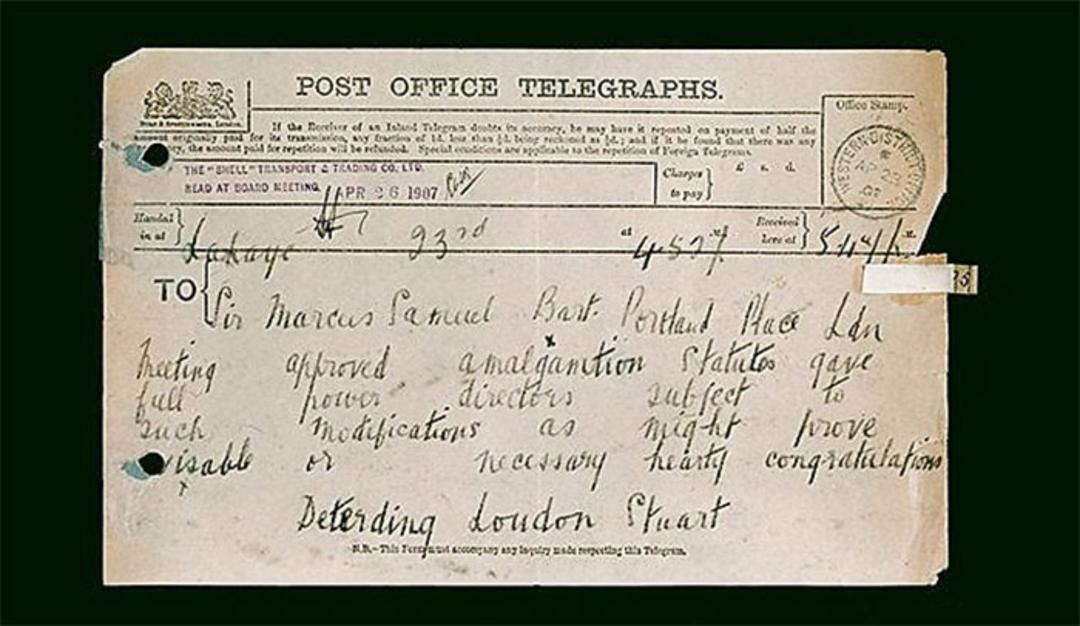 POST OFFICE TELEGRAPHS.
Office Stamp.
If the Receiver of an Inland Telegram doubts its accuracy, he may have it repeated on payment of half the
amount originally paid for its transmission, any fraction of 1d. less than ½d. being reckoned as ½d.; and if it be found that there was any
the amount paid for repetition will be refunded. Special conditions are applicable to the repetition of Foreign Telegrams.
THE "SHELL" TRANSPORT & TRADING CO. LTD.
READ AT BOARD MEETING. APR 26 1907
Charges to pay } £ s. d.
WESTERN DISTRICT
AP 23
07
Handed in at } Lahaye 23rd at 4.57 Received here at }
TO { Sir Marcus Samuel Bart. Portland Place Ldn
Meeting approved amalgamation Statutes gave
full power directors subject to
such modifications as might prove
visable or necessary hearty congratulations
Deterding Loudon Stuart
N.B.—This Form must accompany any inquiry made respecting this Telegram.